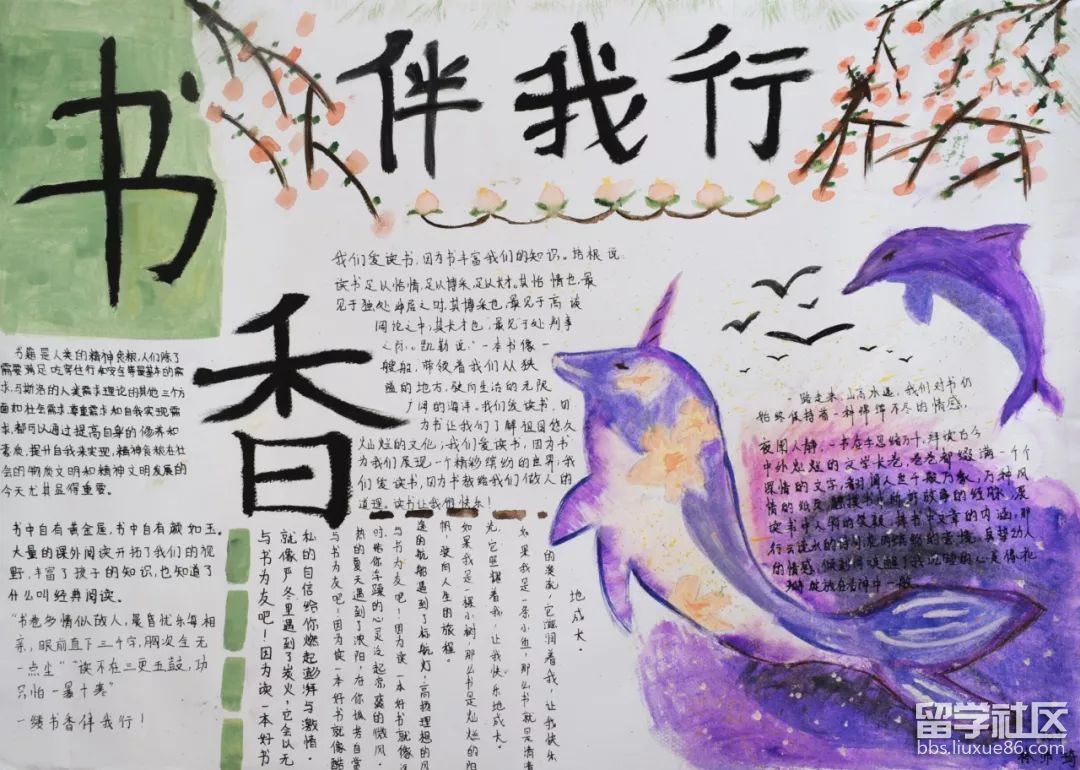 书香
伴我行
我们爱读书,因为书丰富我们的知识。培根说:
读书足以怡情,足以博采,足以长才。其怡情也,最
见于独处幽居之时;其博采也,最见于高谈
阔论之中;其长才也,最见于处判事
之际。凯勒说:“一本书像一
艘船,带领着我们从狭
隘的地方,驶向生活的无限
广阔的海洋。我们爱读书,因
为书让我们了解祖国悠久
灿烂的文化;我们爱读书,因为书
为我们展现一个精彩缤纷的世界;我
们爱读书,因为书教给我们做人的
道理。读书让我们快乐!
书籍是人类的精神食粮,人们除了
需要满足吃穿住行和安全等最基本的需
求,马斯洛的人类需求理论的其他三个方
面和社会需求、尊重需求和自我实现需
求,都可以通过提高自身的修养和
素质,提升自我来实现,精神食粮在社
会的物质文明和精神文明发展的
今天尤其显得重要。
书中自有黄金屋,书中自有颜如玉。
大量的课外阅读开拓了我们的视
野,丰富了孩子的知识,也知道了
什么叫经典阅读。
“书卷多情似故人,晨昏忧乐每相
亲,眼前直下三千字,胸次全无
一点尘”“读不在三更五鼓,功
只怕一曝十寒”
一缕书香伴我行!
一路走来,山高水远,我们对书仍
始终保持着一种绵绵不尽的情感,
夜阑人静,一书在手思绪万千,拜读古今
中外灿烂的文学长卷,卷卷都缀满一个个
深情的文字,翻阅人世千般万象,万种风
情的纸页,触摸书中的故事的经脉,展
读书中人物的笑颜,读书中文章的内涵,那
行云流水的诗词
的情感,
瓣绽放在
地成长。
的浆液,它滋润着我,让我快乐
如果我是一条小鱼,那么书就是清清
光,它照耀着我,让我快乐地成长。
如果我是一棵小树,那么书是灿烂的阳
帆,驶向人生的旅程。
途的航船遇到了航标灯,高扬理想的风
与书为友吧!因为读一本好书就像迷
时,给你浮躁的心灵泛起凉爽的微风。
热的夏天遇到了浓阴,在你狂傲自
与书为友吧!因为读一本好书就像酷
私的自信给你燃起澎湃与激情。
就像严冬里遇到了炭火,它会以无
与书为友吧!因为读一本好书
留学社区
bbs.liuxue86.com